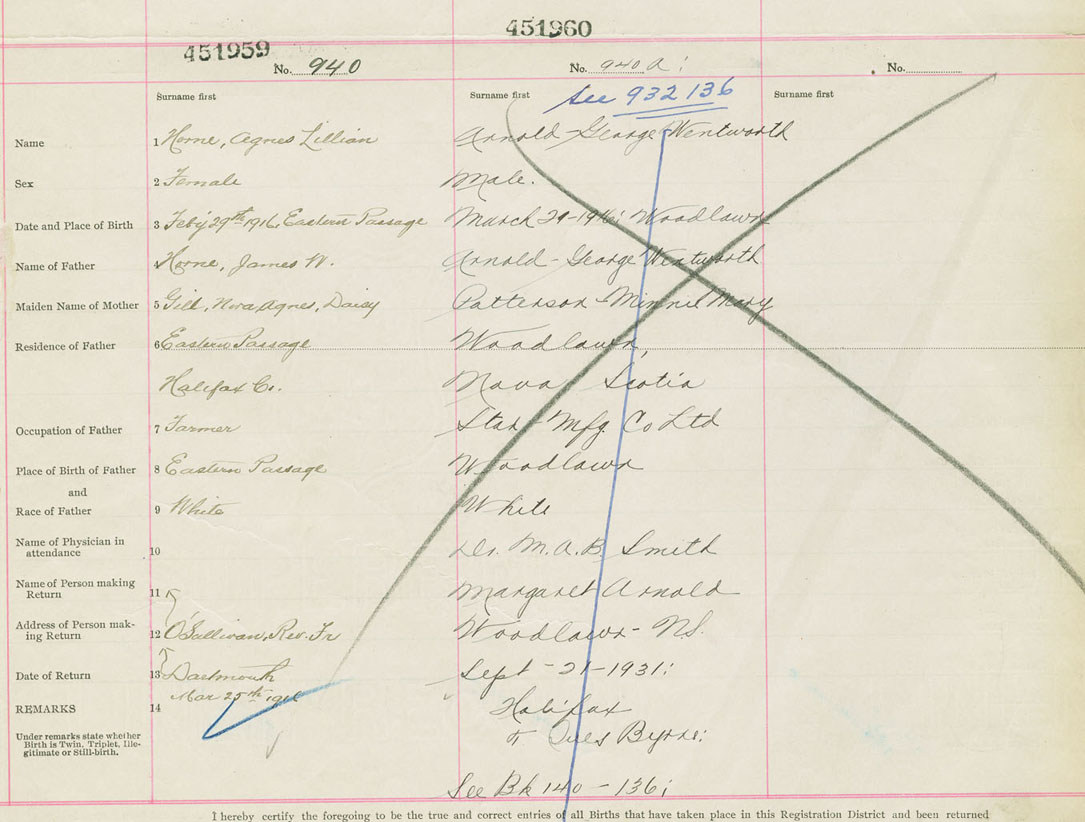 451959
451960
No. 940
No. 940 a
No.
Surname first
Surname first
See 932136
Surname first
Name 1 Horne, Agnes Lillian Arnold - George Wentworth
Sex 2 Female Male.
Date and Place of Birth 3 Feb'y 29th 1916, Eastern Passage March 1916 Woodlawn
Name of Father 4 Horne, James W. Arnold - George Wentworth
Maiden Name of Mother 5 Gill, Nora, Agnes, Daisy Patterson - Minnie Mary
Residence of Father 6 Eastern Passage Woodlawn,
Halifax Co. Nova Scotia
Occupation of Father 7 Farmer Star Mfg. Co Ltd
Place of Birth of Father 8 Eastern Passage Woodlawn
and
Race of Father 9 White White
Name of Physician in
attendance 10 Dr. M. A. B. Smith
Name of Person making
Return 11 Margaret Arnold
Address of Person mak-
ing Return 12 O'Sullivan, Rev. Fr Woodlawn - NS.
Date of Return 13 Dartmouth Sept - 21 - 1931
Mar 25th 1916
REMARKS 14 Halifax
Under remarks state whether
Birth is Twin, Triplet, Ille-
gitimate or Still-birth.
Byrne
See Bk 140 - 136
I hereby certify the foregoing to be the true and correct entries of all Births that have taken place in this Registration District and been returned